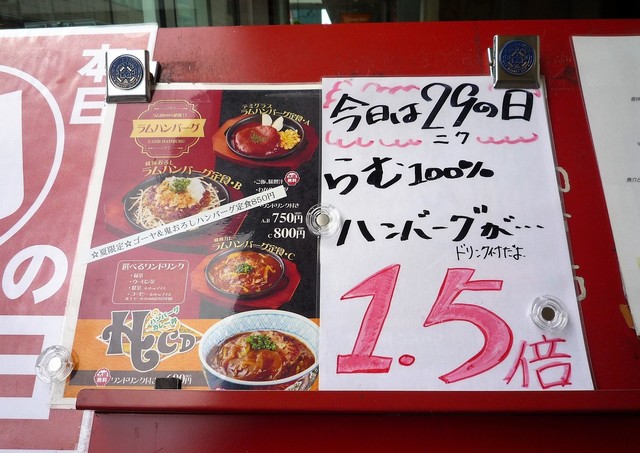 本日
の
ラムハンバーグ
デミグラス
ラムハンバーグ定食・A
ラムハンバーグ定食・B
・ご飯、味噌汁
ドリンク付き
A.B 750円
C 800円
☆夏限定☆ゴーヤ&鬼おろしハンバーグ定食850円
ラムハンバーグ定食・C
選べるワンドリンク
・緑茶
・ウーロン茶
・紅茶
・コーヒー
HCD
ハンバーグ
ワンドリンク付き
今日は29の日
ニク
らむ100%
ハンバーグが…
ドリンク付だよ
1.5倍